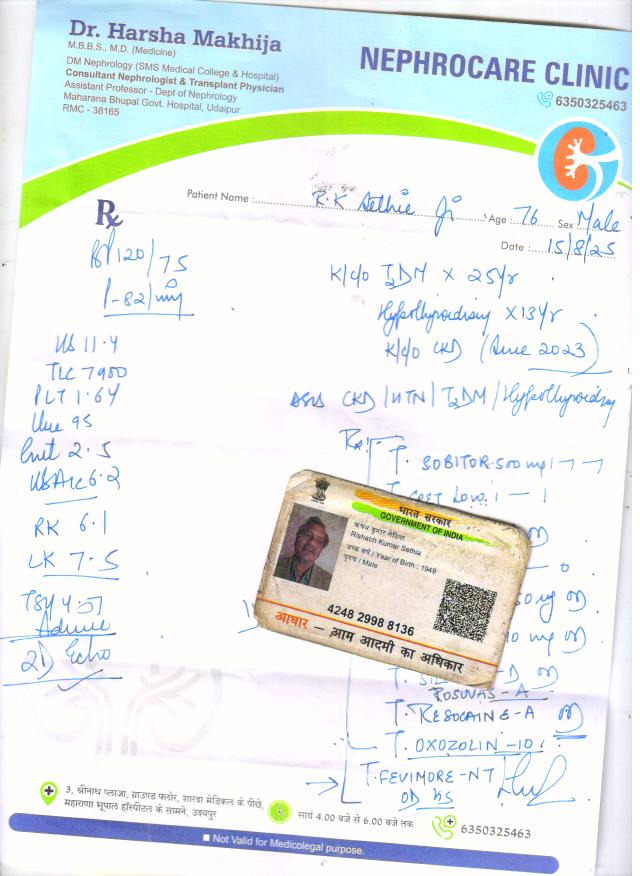 Dr. Harsha Makhija
M.B.B.S., M.D. (Medicine)
DM Nephrology (SMS Medical College & Hospital)
Consultant Nephrologist & Transplant Physician
Assistant Professor - Dept of Nephrology
Maharana Bhupal Govt. Hospital, Udaipur
RMC - 38165
NEPHROCARE CLINIC
6350325463
Rx
Patient Name : R.K Sethie Ji Age : 76 Sex Male
Date : 15/8/25
BP 120/75
P-82/
11.4
TLC 7900
PLT 1.64
95
2.5
6.2
RK 6.1
LK 7.5
TSH 4.57
Advice
2D Echo
K/c/o T2DM x 25yr
Hypothyroidism x 13yr
K/c/o CKD (June 2023)
CKD / HTN / T2DM / Hypothyroidism
Rx
T. SOBITOR 500 mg 1 - 1 - 1
1 - 1
0
mg
10 mg
ROSUVAS - A
T. RESOCAINE - A
T. OXOZOLIN - 10
T. FEVIMORE - NT
OD HS
भारत सरकार
GOVERNMENT OF INDIA
ऋषभ कुमार सेठिया
Rishabh Kumar Sethia
जन्म वर्ष / Year of Birth : 1949
पुरुष / Male
4248 2998 8136
आधार — आम आदमी का अधिकार
3, श्रीनाथ प्लाजा, ग्राउण्ड फ्लोर, शारदा मेडिकल के पीछे,
महाराणा भूपाल हॉस्पीटल के सामने, उदयपुर
सायं 4.00 बजे से 6.00 बजे तक
6350325463
Not Valid for Medicolegal purpose.